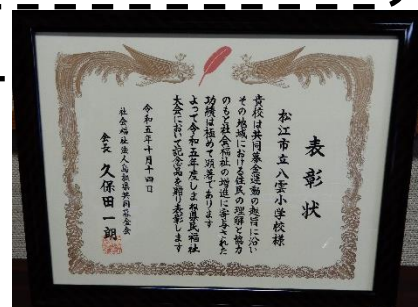 表彰状
松江市立八雲小学校様
貴校は共同募金運動の趣旨に沿い
その地域における住民の理解と協力
のもと社会福祉の増進に寄与された
功績は極めて顕著であります
よって令和五年度しまね県民福祉
大会において記念品を贈り表彰します
令和五年十月十四日
社会福祉法人島根県共同募金会
会長 久保田一朗